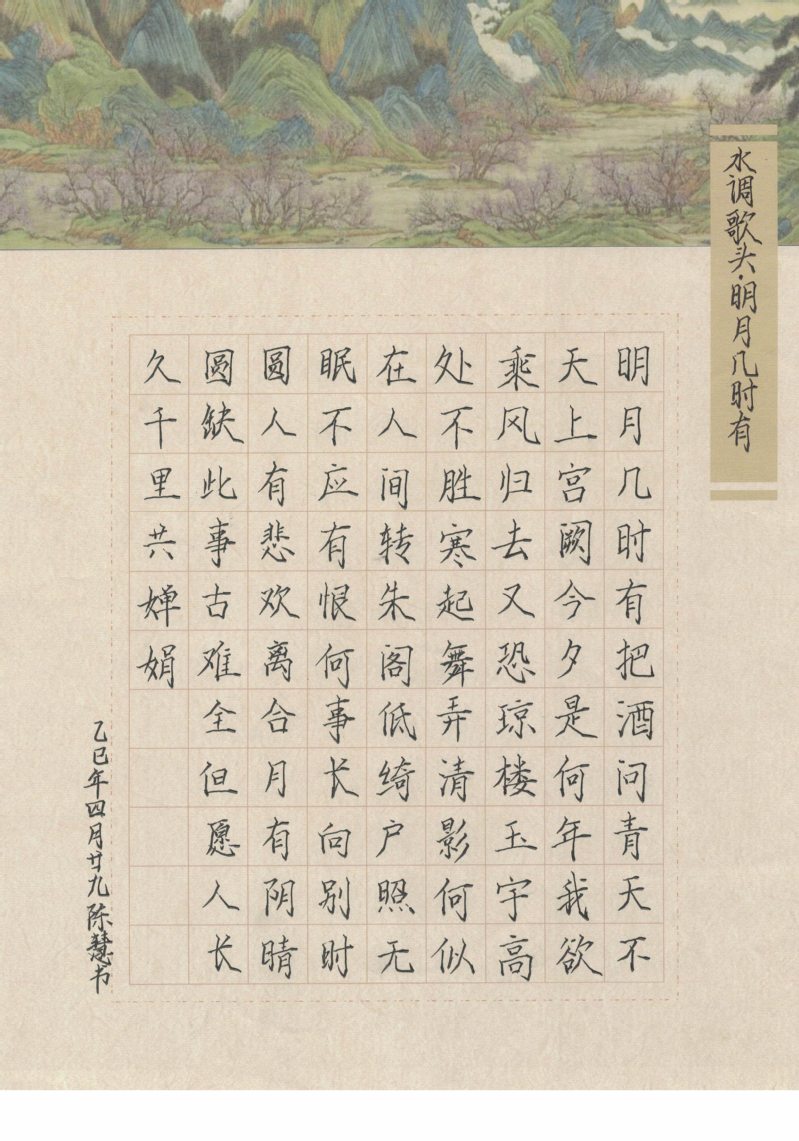 水调歌头·明月几时有
明月几时有把酒问青天不
天上宫阙今夕是何年我欲
乘风归去又恐琼楼玉宇高
处不胜寒起舞弄清影何似
在人间转朱阁低绮户照无
眠不应有恨何事长向别时
圆人有悲欢离合月有阴晴
圆缺此事古难全但愿人长
久千里共婵娟
乙巳年四月廿九陈慧书